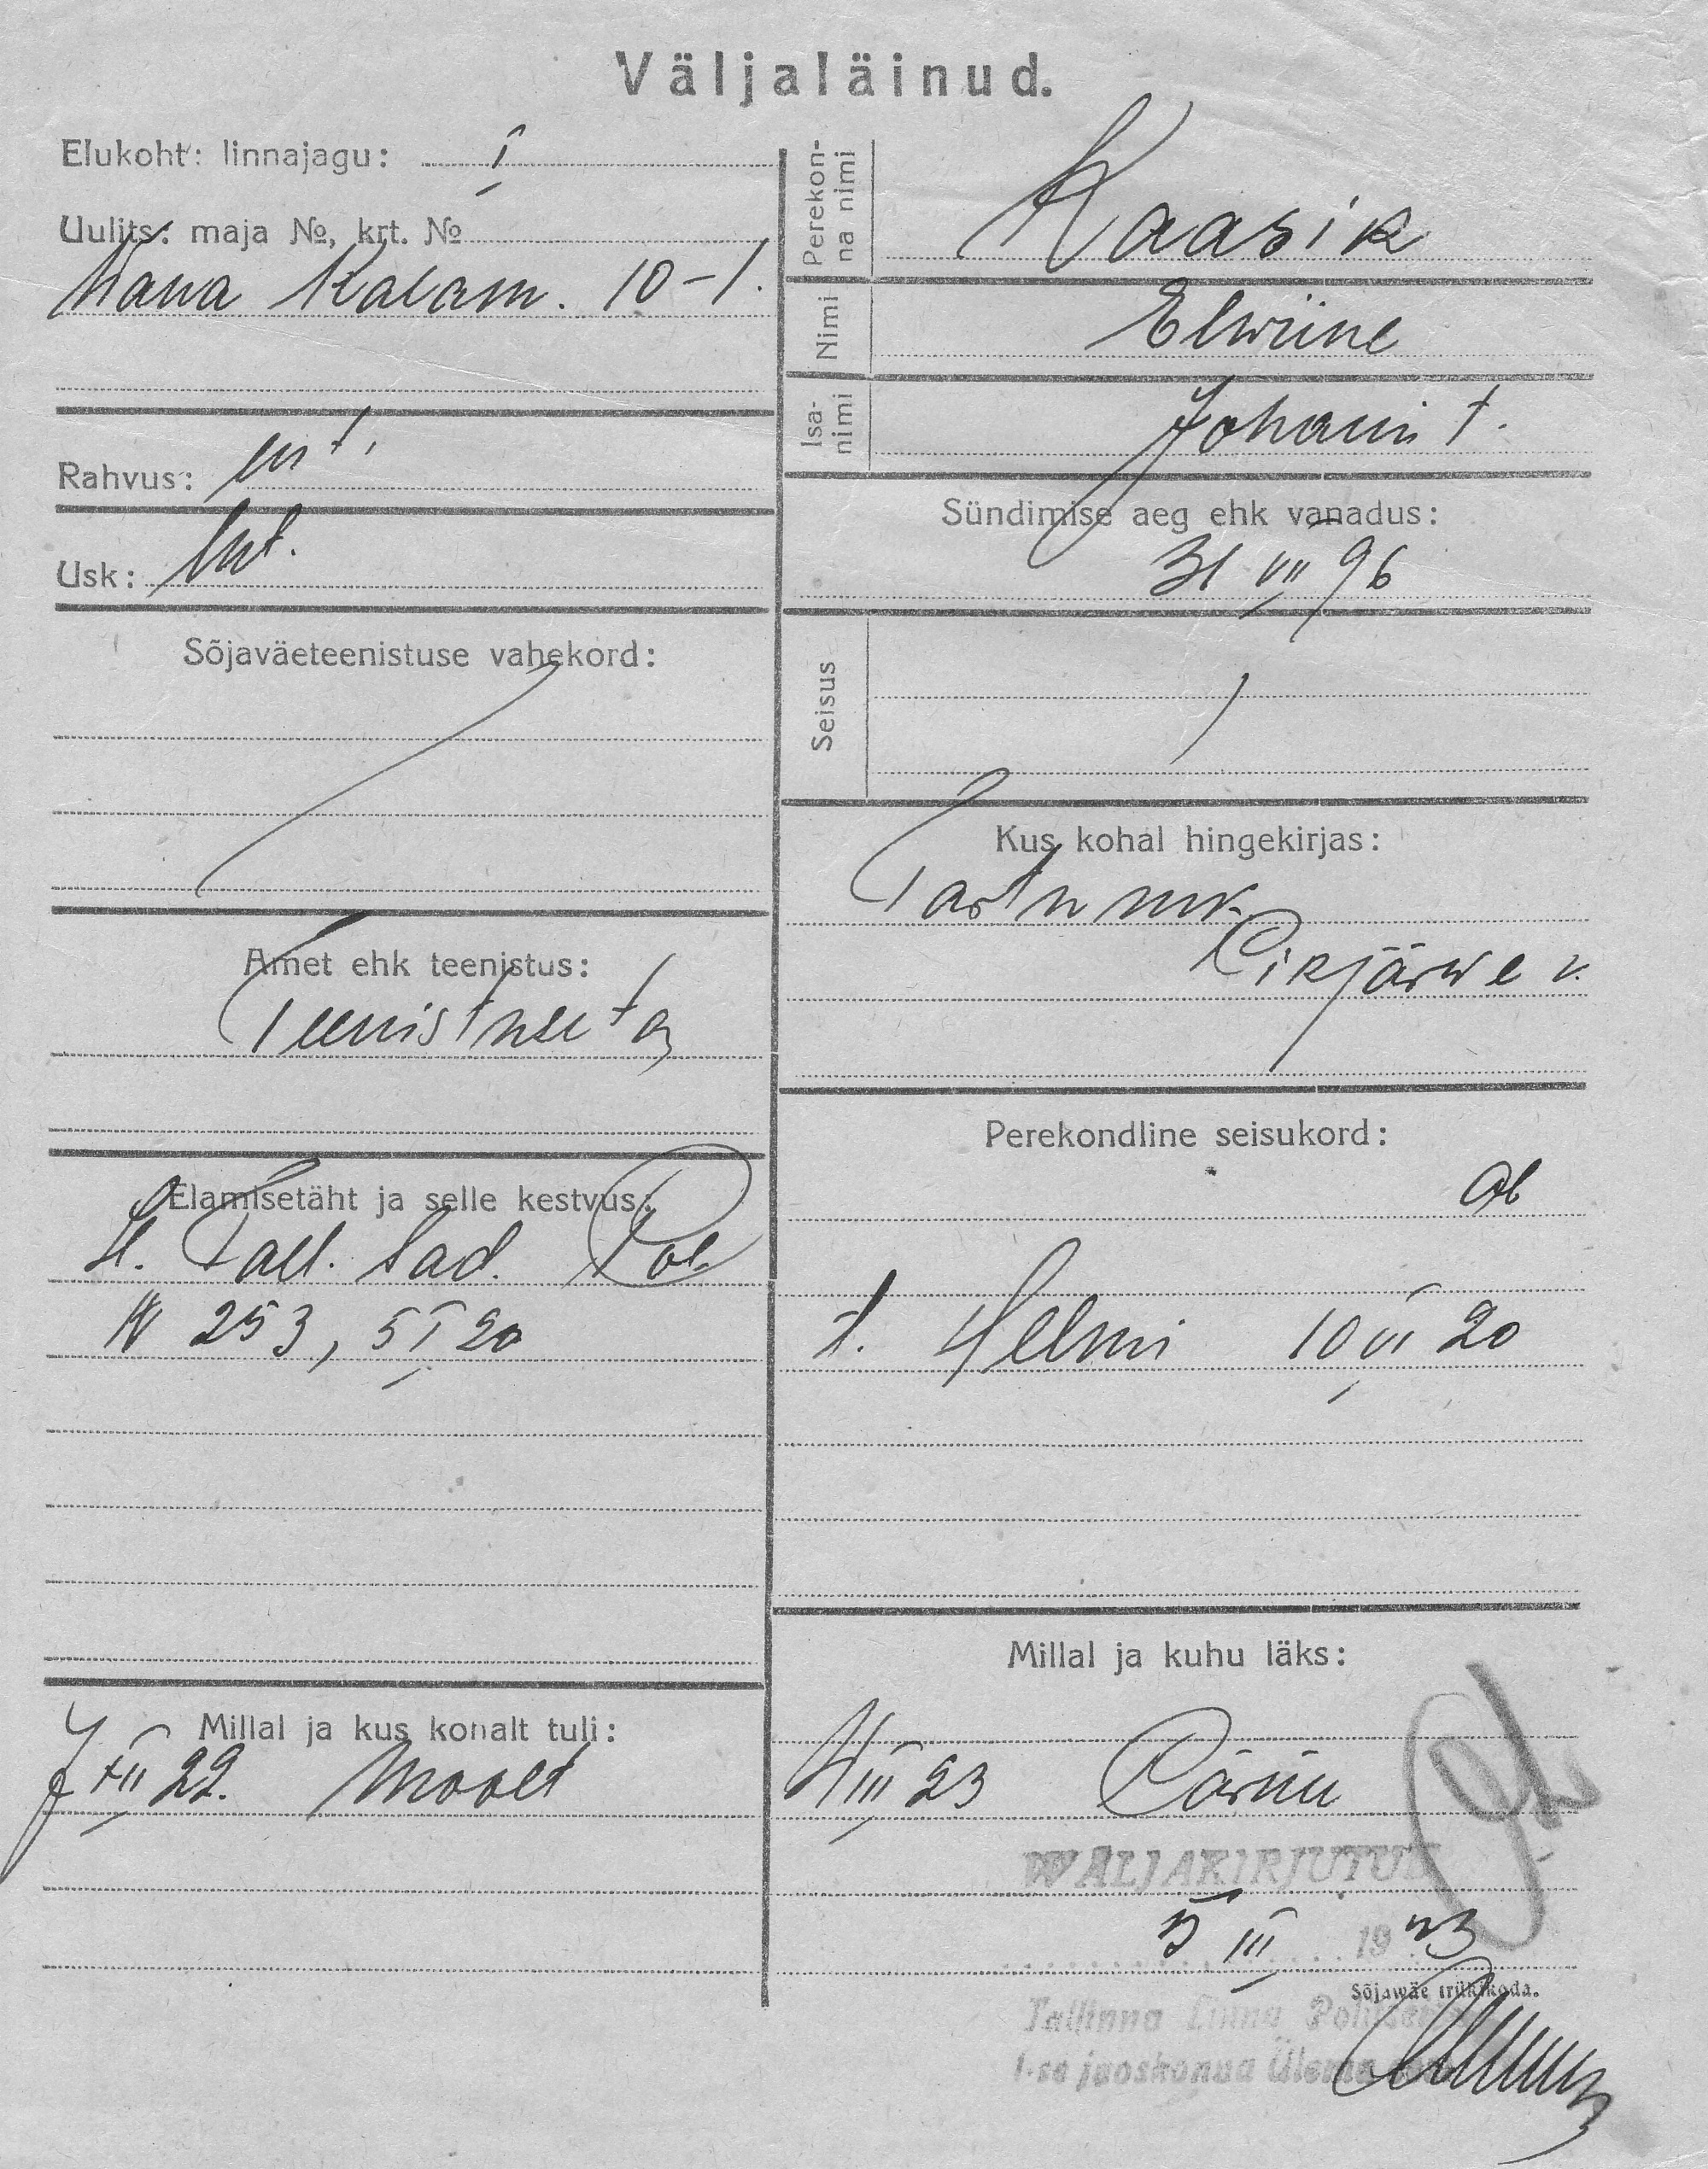 Väljaläinud.
Elukoht: linnajagu: I
Uulits: maja №, krt. №
Wana Kalam. 10-1.
Rahvus: est.
Usk: lut.
Sõjaväeteenistuse vahekord:
Amet ehk teenistus:
Teenistuseta
Elamisetäht ja selle kestvus:
Tall. Sad. Pol.
№ 253, 5 I 20
Millal ja kus kohalt tuli:
7 XII 22. Moolt
Perekon-
na nimi
Kaasik
Nimi
Elwiine
Isa-
nimi
Johani t.
Sündimise aeg ehk vanadus:
31 VII 96
Seisus
Kus kohal hingekirjas:
Tartu mk.
Pikjärwe v.
Perekondline seisukord:
ab
t. Helmi 10 VI 20
Millal ja kuhu läks:
4 III 23 Pärnu
WÄLJAKIRJUTUD
5 III 1923
Sõjawäe trükikoda.
Tallinna Linna Politsei
1-se jaoskonna Ülema